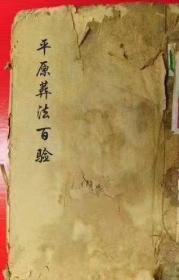 平原葬法百验